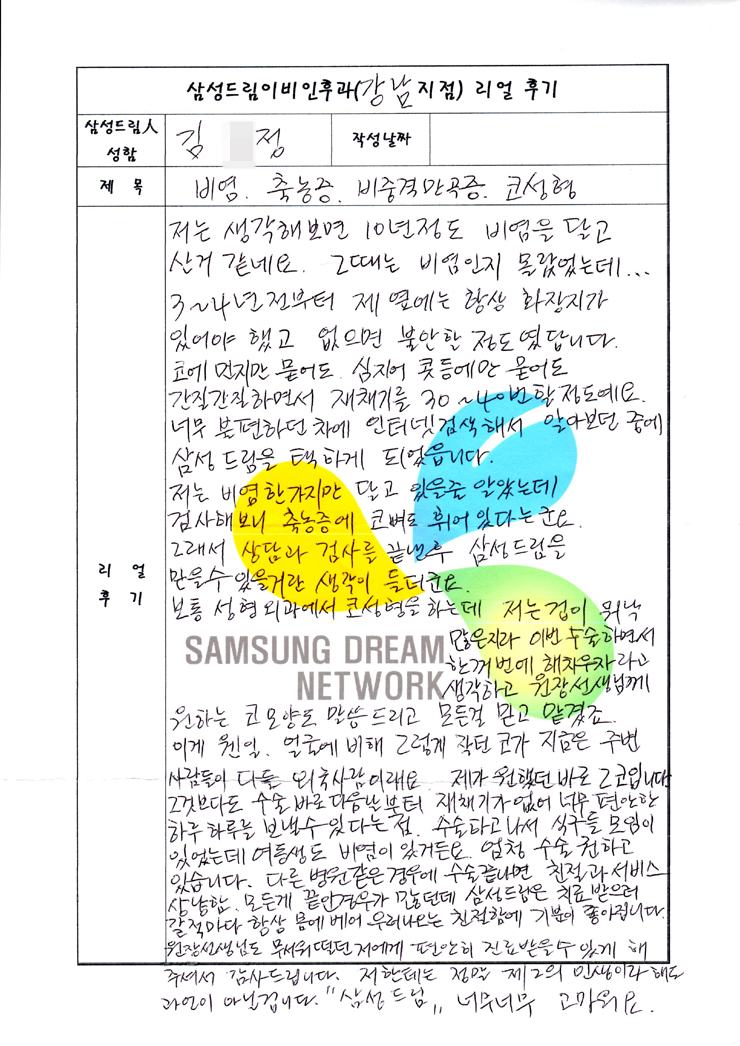 삼성드림이비인후과(강남지점) 리얼 후기
삼성드림人
성함
김 정
작성날짜
제 목
비염. 축농증. 비중격만곡증. 코성형
리 얼
후 기
저는 생각해보면 10년정도 비염을 달고
산거 같네요. 그때는 비염인지 몰랐었는데...
3~4년전부터 제 옆에는 항상 화장지가
있어야 했고 없으면 불안한 정도였답니다.
코에 먼지만 묻어도. 심지어 콧등에만 묻어도
간질간질하면서 재채기를 30~40번할정도예요.
너무 불편하던차에 인터넷검색해서 알아보던 중에
삼성드림을 택하게 되었읍니다.
저는 비염한가지만 달고 있을줄 알았는데
검사해보니 축농증에 코뼈도 휘어있다는군요.
그래서 상담과 검사를 끝낸후 삼성드림을
믿을수있을거란 생각이 들더군요.
보통 성형외과에서 코성형을 하는데 저는겁이 워낙
많은지라 이번 수술하면서
한꺼번에 해치우자라고
생각하고 원장선생님께
SAMSUNG DREAM
NETWORK
원하는 코모양도 말씀드리고 모든걸 믿고 맡겼죠.
이게 웬일. 얼굴에 비해 그렇게 작던 코가 지금은 주변
사람들이 다들 외국사람이래요. 제가 원했던 바로 그코입니다
그것보다도 수술 바로다음날부터 재채기가 없어 너무 편안한
하루하루를 보낼수있다는점. 수술하고나서 식구들 모임이
있었는데 여동생도 비염이 있거든요. 엄청 수술 권하고
있습니다. 다른 병원같은경우에 수술끝나면 친절과 서비스
상냥함. 모든게 끝인경우가 많던데 삼성드림은 치료받으러
갈적마다 항상 몸에 베어 우러나오는 친절함에 기분이 좋아집니다.
원장선생님도 무서워떨던 저에게 편안히 진료받을수있게 해
주셔서 감사드립니다. 저한테는 정말 제2의 인생이라 해도
과언이 아닐겁니다. "삼성드림" 너무너무 고마워요.